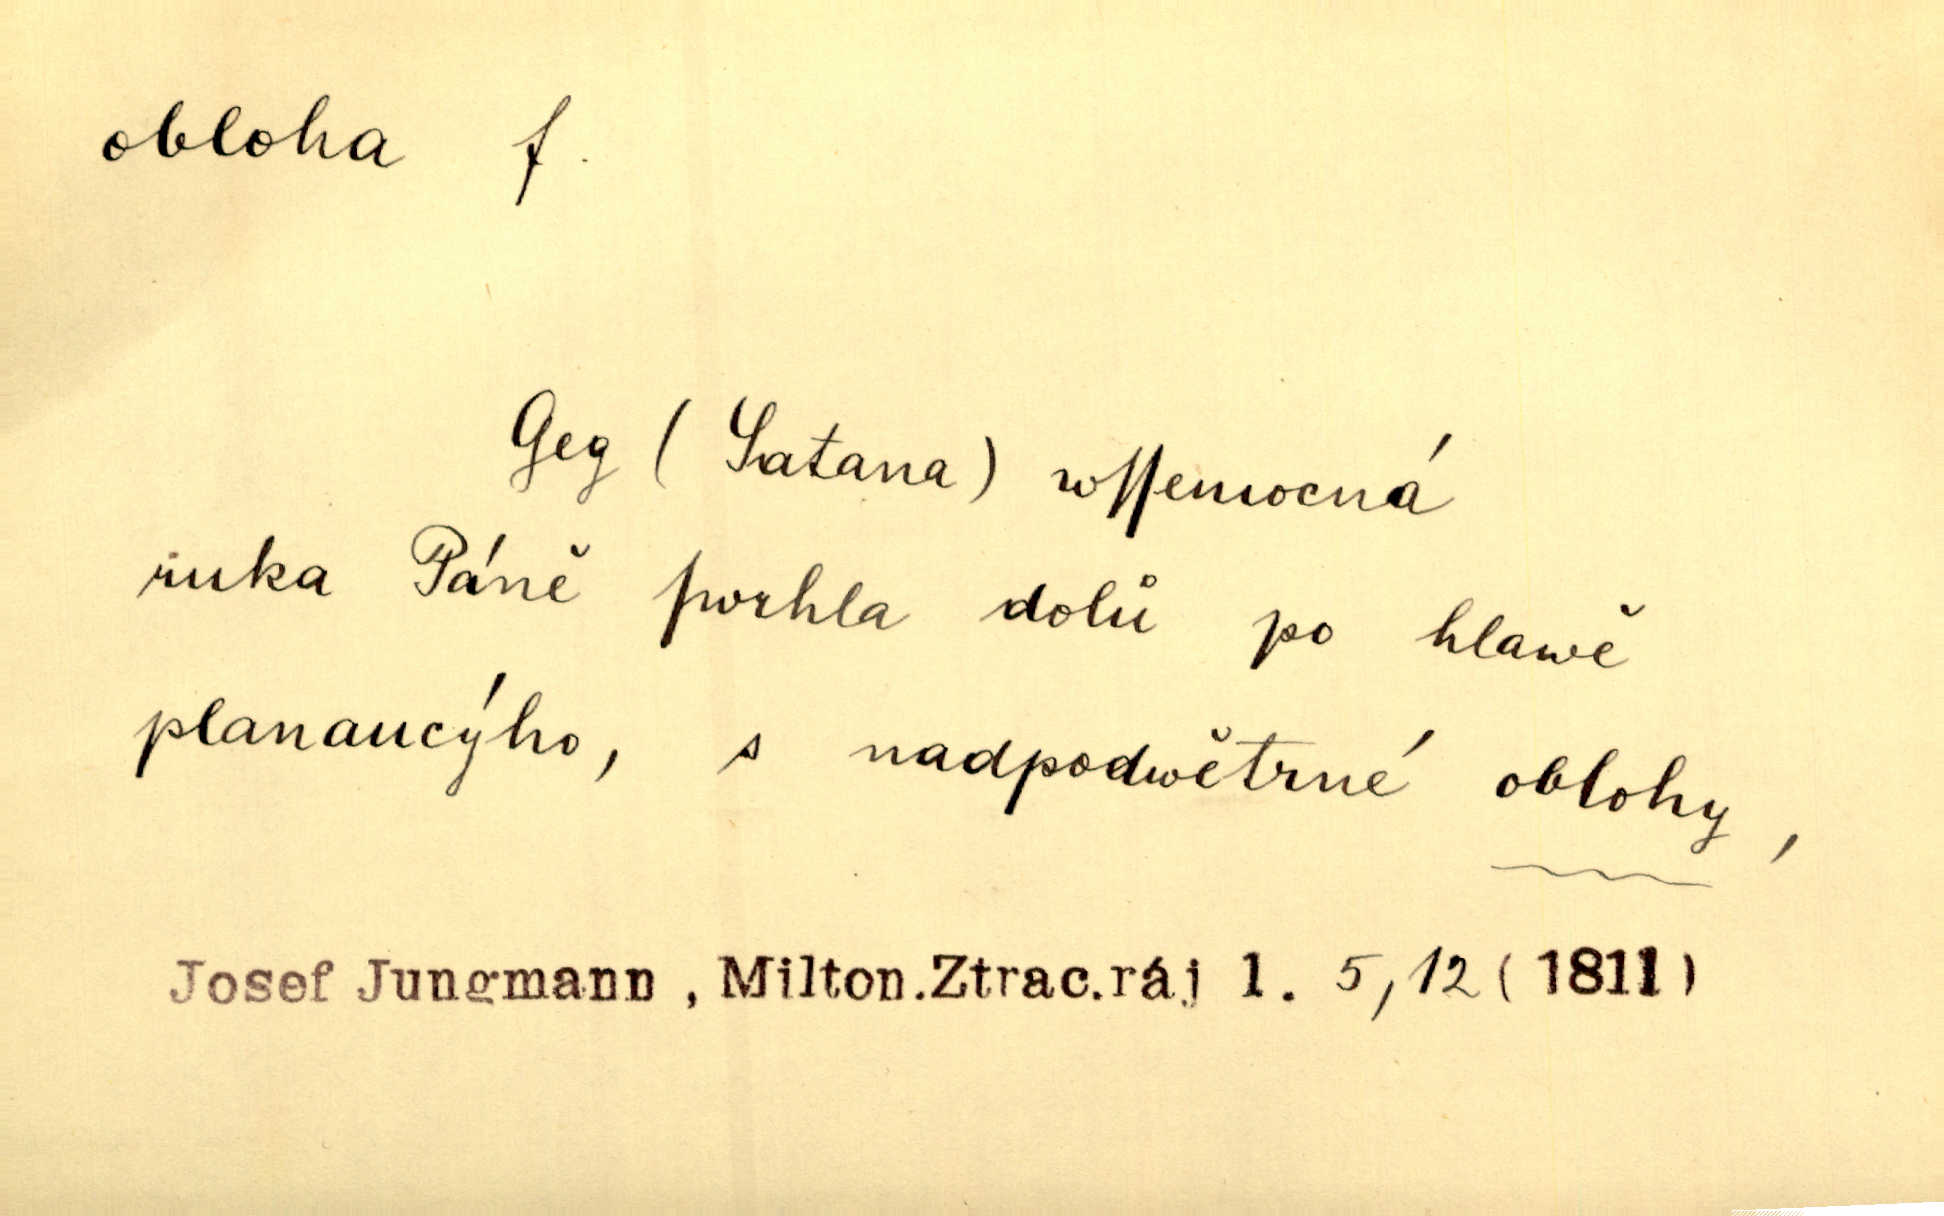 obloha f.
Geg (Satana) wssemocná
ruka Páně swrhla dolů po hlawě
planaucýho, s nadpodwětrné oblohy,
Josef Jungmann, Milton.Ztrac.ráj 1. 5,12 (1811)